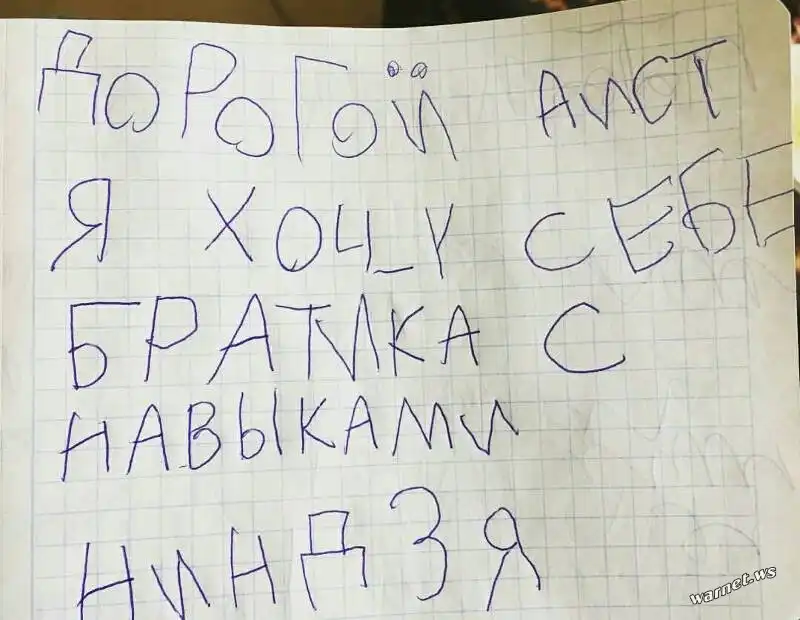 ДОРОГОЙ АИСТ
Я ХОЧУ СЕБЕ
БРАТИКА С
НАВЫКАМИ
НИНДЗЯ
warnet.ws